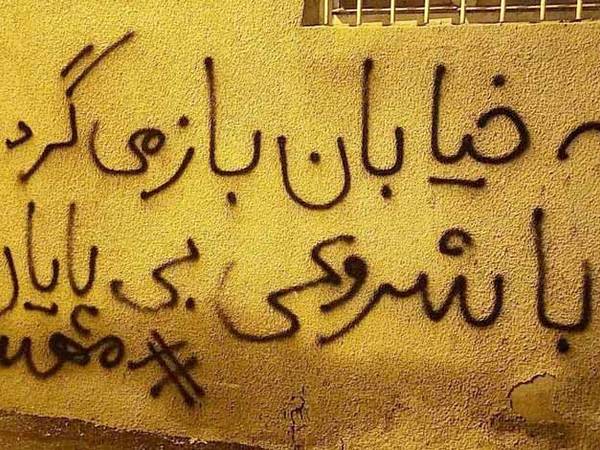 خیابان بازمی گرد
با شروعی بی پایان
#مهس